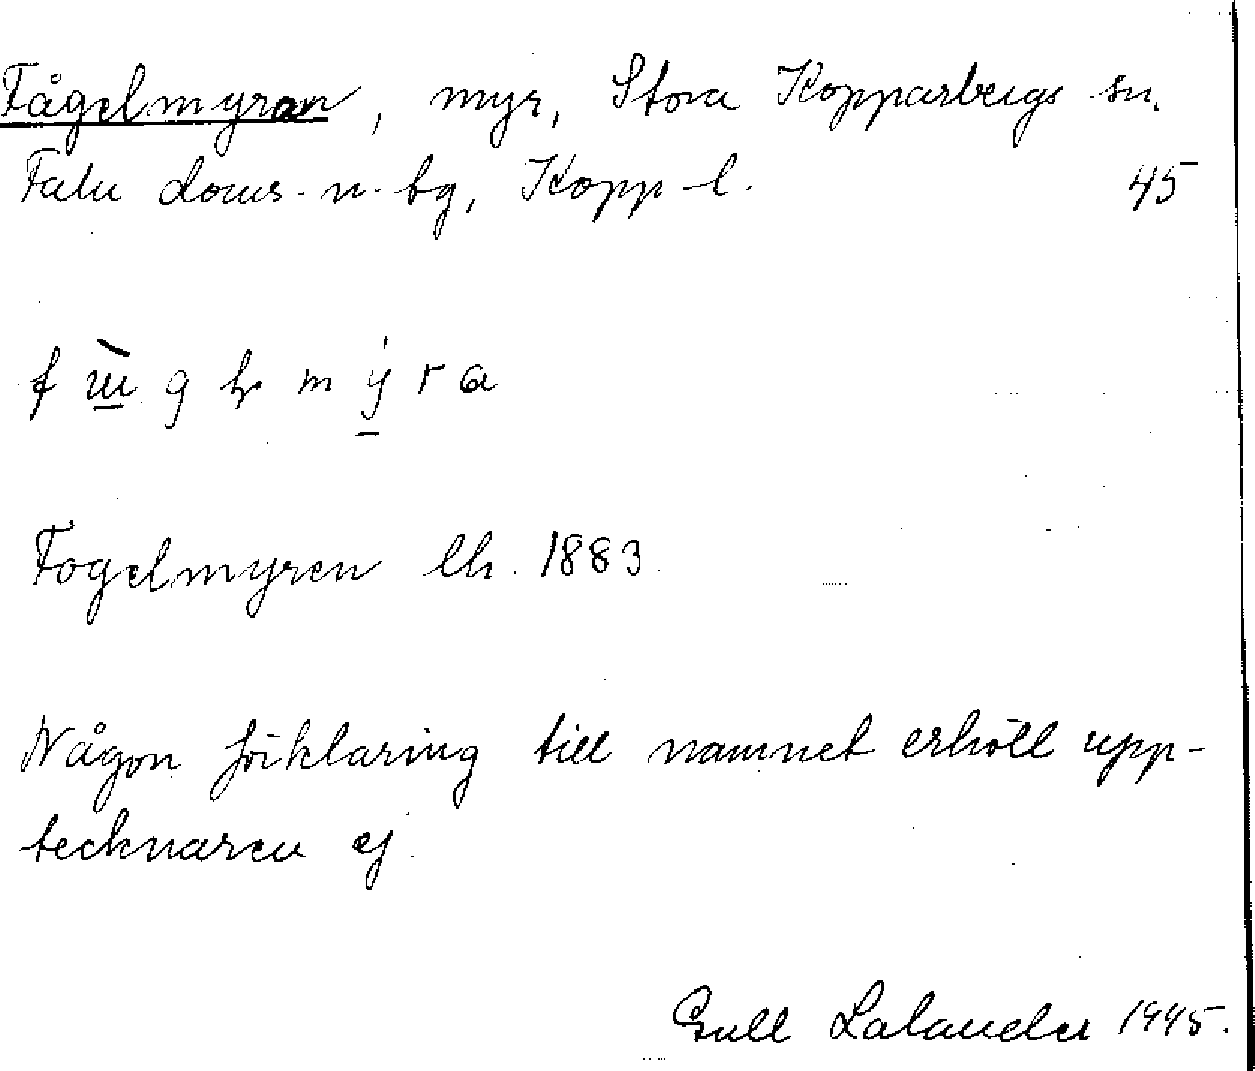 Fågelmyran, myr, Stora Kopparbergs sn.
Falu doms.n.bg, Kopp-l. 45
Fogelmyren lh. 1883.
Någon förklaring till namnet erhöll upp-
tecknaren ej.
Gull Lalander 1945.